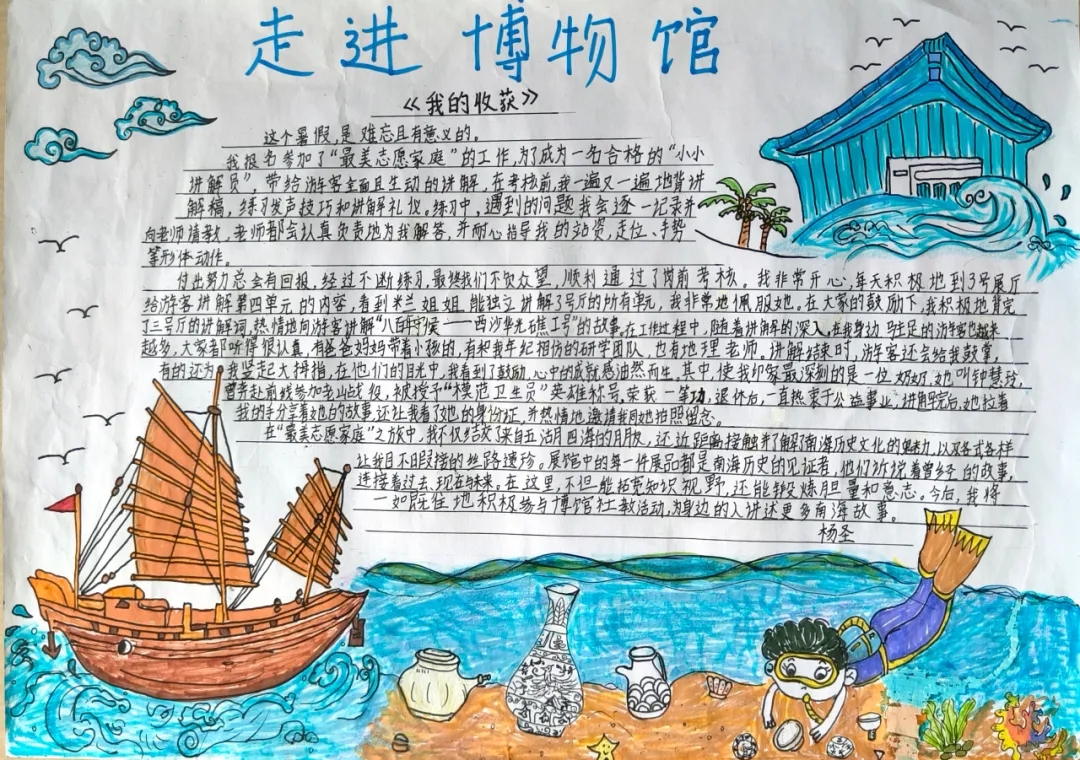 走进博物馆
《我的收获》
这个暑假,是难忘且有意义的。
我报名参加了“最美志愿家庭”的工作,为了成为一名合格的“小小
讲解员”,带给游客全面且生动的讲解,在考核前,我一遍又一遍地背讲
解稿,练习发声技巧和讲解礼仪。练习中,遇到的问题我会逐一记录并
向老师请教,老师都会认真负责地为我解答,并耐心指导我的站姿、走位、手势
等形体动作。
付出努力总会有回报,经过不断练习,最终我们不负众望,顺利通过了岗前考核。我非常开心,每天积极地到3号展厅
给游客讲解第四单元的内容,看到米兰姐姐能独立讲解了3号厅的所有单元,我非常地佩服她。在大家的鼓励下,我积极地背完
了三号厅的讲解词,热情地向游客讲解“八百守候——西沙华光礁I号”的故事。在工作过程中,随着讲解的深入,在我身边驻足的游客也越来
越多,大家都听得很认真,有爸爸妈妈带着小孩的,有和我年纪相仿的研学团队,也有地理老师。讲解结束时,游客还会给我鼓掌,
有的还为我竖起大拇指,在他们的目光中,我看到了鼓励,心中的成就感油然而生。其中,使我印象最深刻的是一位奶奶,她叫钟慧玲,
曾奔赴前线参加老山战役,被授予“模范卫生员”英雄称号。荣获一等功,退休后,一直热衷于公益事业,讲解完后,她拉着
我的手分享着她的故事,还让我看了她的身份证,并热情地邀请我同她拍照留念。
在“最美志愿家庭”之旅中,我不仅结交了来自五湖四海的朋友,还近距离接触并了解了南海历史文化的魅力,以及各式各样
让我目不暇接的丝路遗珍。展馆中的每一件展品都是南海历史的见证者,他们诉说着曾经的故事,
连接着过去、现在与未来。在这里,不但能拓宽知识视野,还能锻炼胆量和意志。今后,我将
一如既往地积极参与博馆社教活动,为身边的人讲述更多南海故事。
杨圣